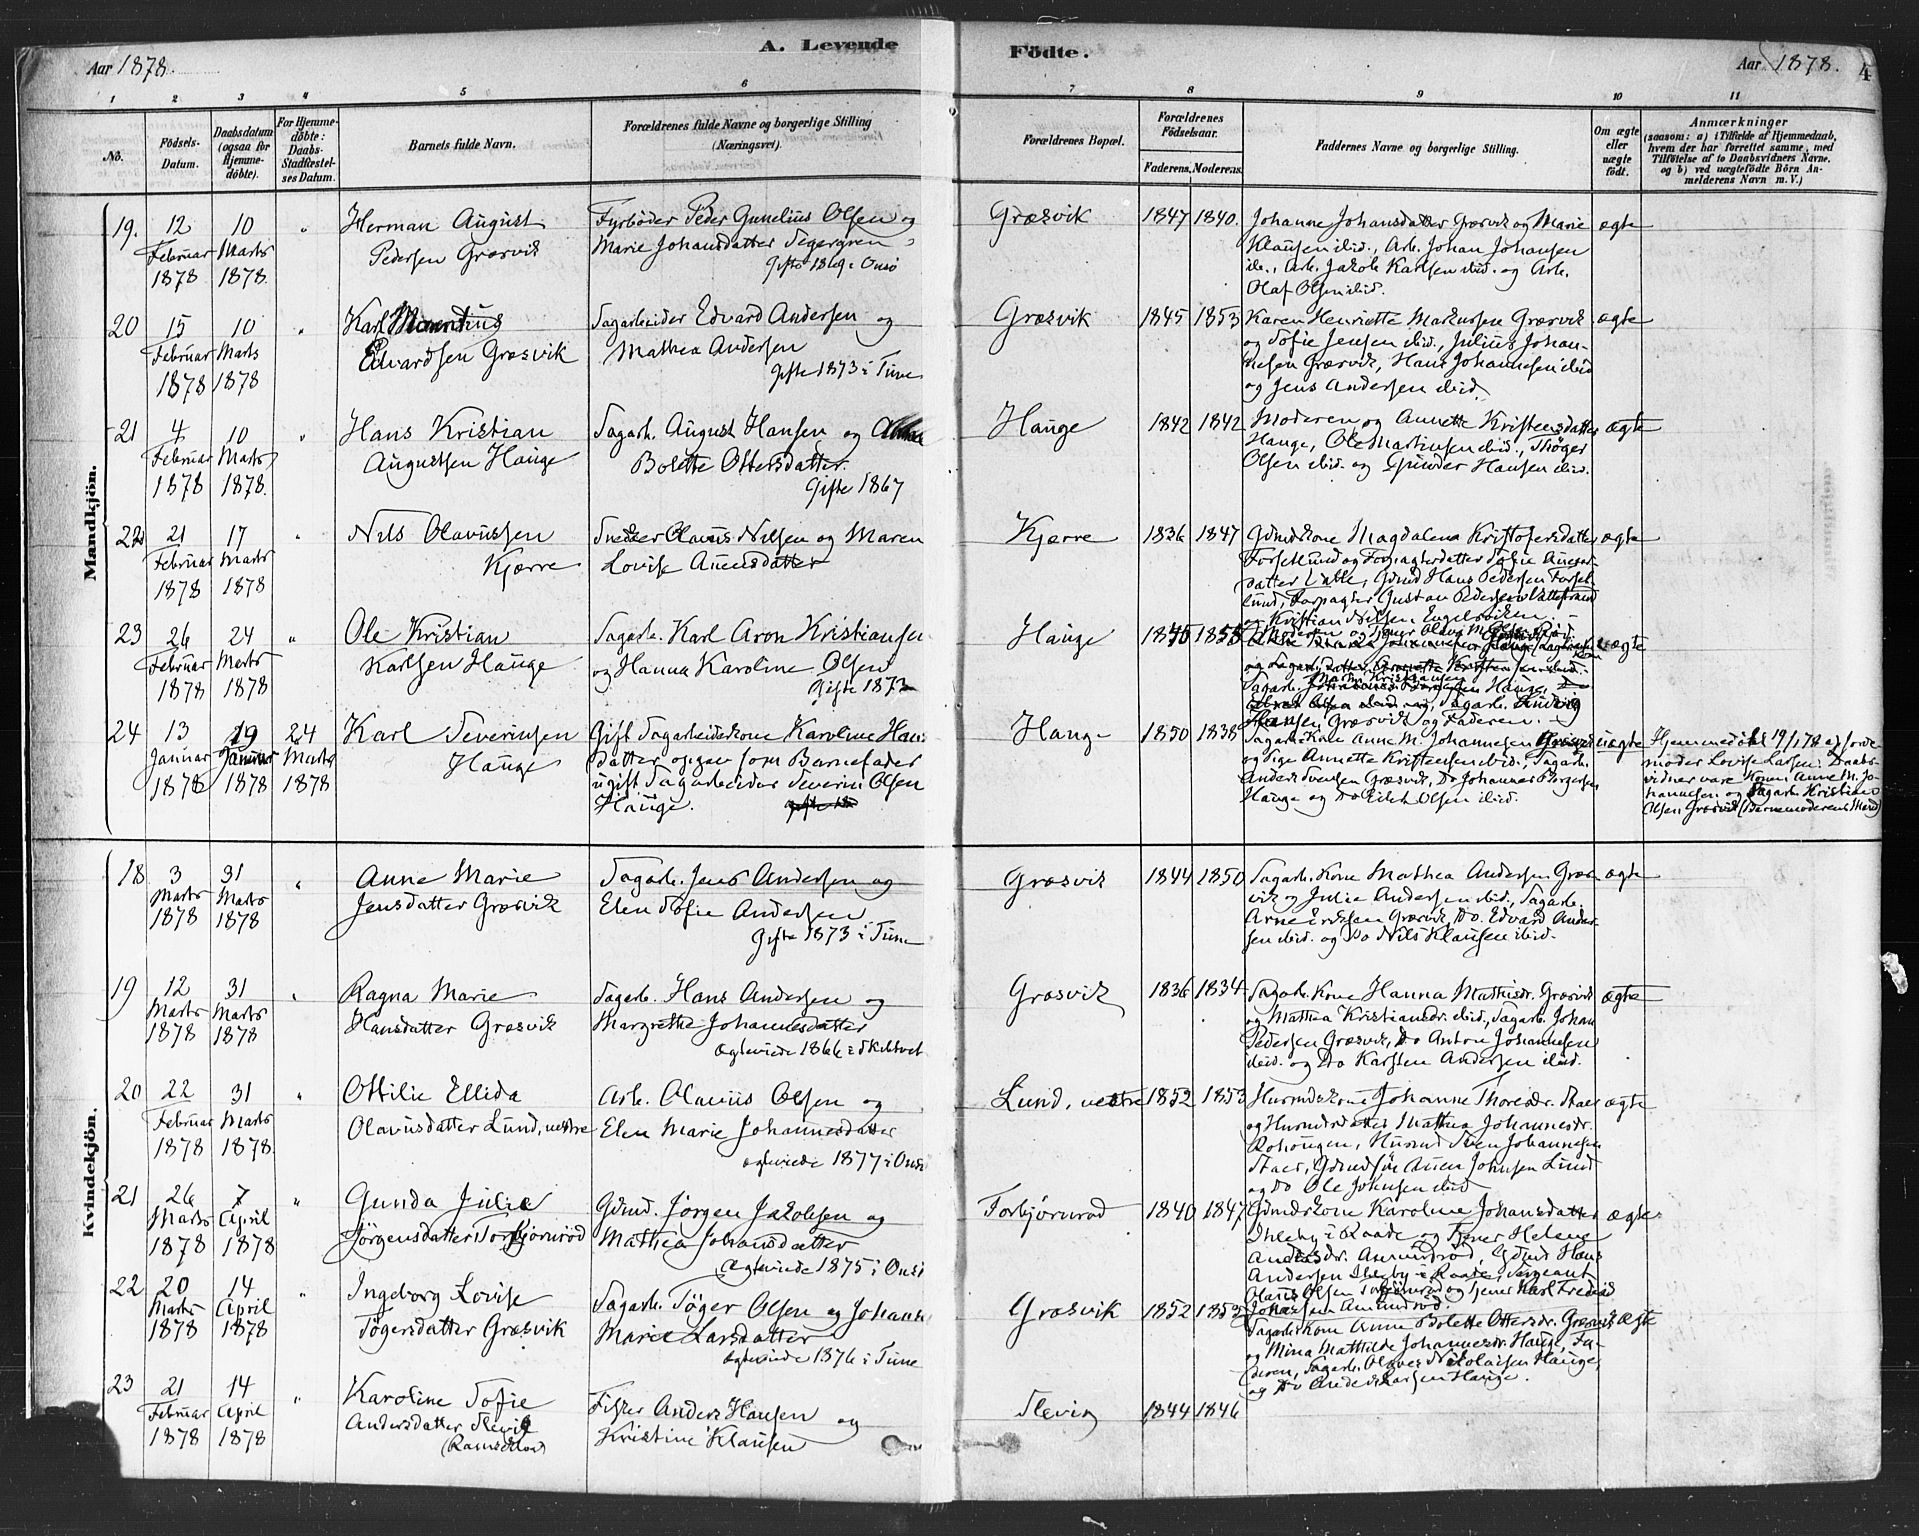 A. Levende Fødte.
Aar 1878.
Aar 1878. 4
1 2 3 4 5 6 7 8 9 10 11
No.
Fødsels-Datum.
Daabsdatum (ogsaa for Hjemmedöbte).
For Hjemmedöbte: Daabs-Stadfæstelses Datum.
Barnets fulde Navn.
Forældrenes fulde Navne og borgerlige Stilling (Næringsvei).
Forældrenes Bopæl.
Forældrenes Fødselsaar.
Faderens. Moderens.
Faddernes Navne og borgerlige Stilling.
Om ægte eller uægte født.
Anmærkninger
(saasom: a) i Tilfælde af Hjemmedaab,
hvem der har forrettet samme, med
Tilføielse af to Daabsvidners Navne,
og b) ved uægtefødte Börn An-
melderens Navn m. V.)
Mandkjön.
19. 12 Februar 1878
10 Marts 1878.
Herman August
Pedersen Græsvik
Fyrbøder Peder Gunelius Olsen og
Marie Johansdatter Segergren
Gifte 1869 i Onsø
Græsvik 1847 1840.
Johanne Johansdatter Græsvik og Marie
Klausen ibid., Arb. Johan Johansen
ib., Arb. Jakob Karlsen ibid. og Arb.
Olaf Olsen ibid.
ægte
20 15 Februar 1878
10 Marts 1878
Karl
Edvardsen Græsvik
Sagarbeider Edvard Andersen og
Mathea Andersen
Gifte 1873 i Tune
Græsvik 1845 1853
Karen Henriette Markussen Græsvik
og Sofie Jensen ibid., Julius Johan-
nesen Græsvik, Hans Johannesen ibid
og Jens Andersen ibid.
ægte
21 4 Februar 1878
10 Marts 1878.
Hans Kristian
Augustsen Hauge
Sagarb. August Hansen og
Bolette Ottersdatter.
Gifte 1867
Hauge 1842 1842
Moderen og Annette Kristensdatter
Hauge, Ole Martinsen ibid., Thøger
Olsen ibid. og Gunder Hansen ibid.
ægte
22 21 Februar 1878
17 Marts 1878
Nils Olavussen
Kjærre
Snedker Olavus Nilsen og Maren
Lovise Auensdatter
Kjærre 1836 1847
Gdmdskone Magdalena Kristofersdatter
Forsetlund og Forpagterdatter Sofie
datter Vatle, Gdmd Hans Pedersen Forset-
lund, Forpagter Gustav Pedersen
Kristian Nilsen Engelsviken
ægte
23 26 Februar 1878
24 Marts 1878
Ole Kristian
Karlsen Hauge
Sagarb. Karl Aron Kristiansen
og Hanna Karoline Olsen
Gifte 1873
Hauge 1855
Græsvik og Faderen.
ægte
24 13 Januar 1878
19 Januar 1878
24 Marts 1878
Karl Severinsen
Hauge
Gift Sagarbeiderkone Karoline Hans
datter opgav som Barnefader
ugift Sagarbeider Severin Olsen
Hauge.
Hauge 1850 1838
Sagarbs Kone Anne M. Johannesen Græsvik
og Pige Annette Kristensen ibid., Sagarb.
Anders Svensen Græsvik, Do Johannes Borgersen
Hauge og Do Edel Olsen ibid.
uægte
Hjemmedøbt 19/1 78 af Jorde-
moder Lovise Larsen. Daabs-
vidner vare Konen Anne M. Jo-
hannesen og Sagarb. Kristian
Olsen Græsvik (Barnemoderens Mand)
Kvindekjön.
18 3 Marts 1878
31 Marts 1878
Anne Marie
Jensdatter Græsvik
Sagarb. Jens Andersen og
Elen Sofie Andersen
Gifte 1873 i Tune
Græsvik 1844 1850
Sagarb. Kone Mathea Andersen Græs-
vik og Julie Andersen ibid., Sagarb.
Arne Eriksen Græsvik, Do. Edvard Ander-
sen ibid. og Do Nils Klausen ibid.
ægte
19 12 Marts 1878
31 Marts 1878
Ragna Marie
Hansdatter Græsvik
Sagarb. Hans Andersen og
Margrethe Johannesdatter
Ægteviede 1866 i Skibtvet
Græsvik 1836 1834
Sagarb. Kone Hanna Mathisdr. Græsvik
og Mathea Kristiansdr. ibid., Sagarb. Johan
Pedersen Græsvik, Do Anton Johannesen
ibid. og Do Karsten Andersen ibid.
ægte
20 22 Februar 1878
31 Marts 1878.
Ottilie Ellida
Olavusdatter Lund, vestre
Arb. Olavus Olsen og
Elen Marie Johannesdatter
ægteviede 1877 i Onsø
Lund, vestre 1852 1853
Husmdskone Johanne Thoresdr. Staer
og Husmdsdatter Mathea Johannesdr.
Rohaugen, Husmd Sven Johannesen
Staer, Gdmdsøn Auen Johnsen Lund
og Do Ole Johnsen ibid
ægte
21 26 Marts 1878
7 April 1878
Gunda Julie
Jørgensdatter Torbjørnrød
Gdmd. Jørgen Jakobsen og
Mathea Johansdatter
Ægteviede 1875 i Onsø
Torbjørnrød 1840 1847
Gdmdskone Karoline Johansdatter
Ihleby i Raade og Tjener Helene
Andersdr. Ammundrød, Gdmd Hans
Andersen Ihleby i Raade, Sergeant
Olaus Olsen Torbjørnrød og Tjener Karl Fredrik
Johansen Ammundrød.
ægte
22 20 Marts 1878
14 April 1878
Ingeborg Lovise
Tøgersdatter Græsvik
Sagarb. Tøger Olsen og Johanne
Marie Larsdatter
Ægteviede 1876 i Tune
Græsvik 1852 1853
Sagarbskone Anne Bolette Ottersdr. Græsvik
og Mina Mathilde Johannesdr. Hauge, Fa-
deren, Sagarb. Olaves Nikolaisen Hauge,
og Do Anders Larsen Hauge.
ægte
23 21 Februar 1878
14 April 1878
Karoline Sofie
Andersdatter Slevik
Fisker Anders Hansen og
Kristine Klausen
Slevik 1844 1846